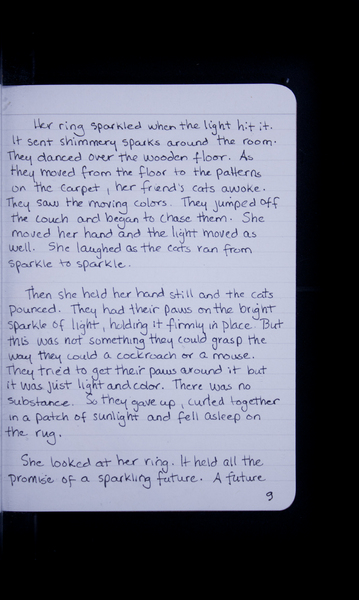 Her ring sparkled when the light hit it.
It sent shimmery sparks around the room.
They danced over the wooden floor. As
they moved from the floor to the patterns
on the carpet, her friend's cats awoke.
They saw the moving colors. They jumped off
the couch and began to chase them. She
moved her hand and the light moved as
well. She laughed as the cats ran from
sparkle to sparkle.
Then she held her hand still and the cats
pounced. They had their paws on the bright
sparkle of light, holding it firmly in place. But
this was not something they could grasp the
way they could a cockroach or a mouse.
They tried to get their paws around it but
it was just light and color. There was no
substance. So they gave up, curled together
in a patch of sunlight and fell asleep on
the rug.
She looked at her ring. It held all the
promise of a sparkling future. A future
9